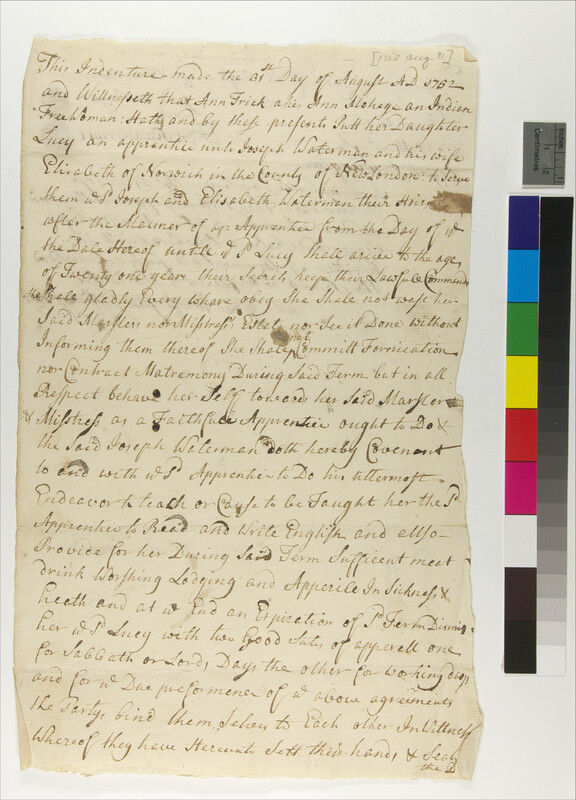 [1752 aug 31]
This Indenture made the 31st Day of August AD 1752
and Wittnesseth that Ann Frick aries Ann Mohege an Indian
Free Woman: Hath and by these presents Putt her Daughter
Lucy an apprentice unto Joseph Waterman and his wife
Elisabeth of Norwich in the County of New London: to Serve
them ye Sd Joseph and Elisabeth Waterman their Heirs
after the Manner of an Apprentice from the Day of ye
the Date Hereof untill ye Sd Lucy Shall arive to the age
of Twenty one years their Secrets keep their Lawfull Commands
She Shall gladly Every whare obey She Shall not wast her
Said Marsters nor Misstress's Estate nor See it Done without
Informing them thereof She Shall not Committ Fornication
nor Contract Matremony During Said Term but in all
Respect behave her Self toward her Said Marster
& Misstress as a Faithfull Apprentice ought to Do &
the Said Joseph Waterman Doth hereby Covenant
to and with ye Sd Apprentice to Do his uttermost
Endeavor to teach or Cause to be Taught her the Sd
Apprentice to Read and Write English and allso
Provide for her During Said Term Sufficent meat
drink Worshing Lodging and Apperile In Sickness &
heath and at ye End an Expiration of Sd Term Dismis
her ye Sd Lucy with two Good Sutes of apperell one
for Sabbath or Lords Days the other for working days
and for ye Due preformence of ye above agreements
the Partys bind them Selves to Each other In Wittness
Whereof they have Hereunto Sett their hands & Seals
the D
Centimetres
1
2